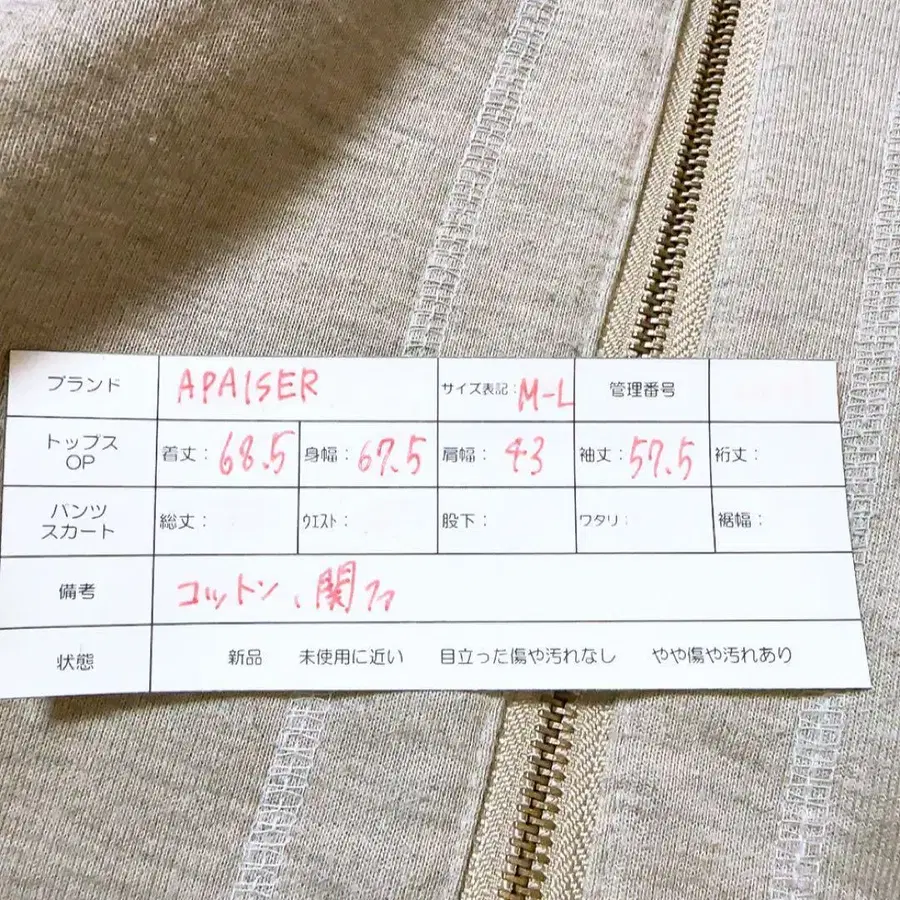 ブランド APAISER サイズ表記：M-L 管理番号
トップス
OP
着丈：68.5 身幅：67.5 肩幅：43 袖丈：57.5 裄丈：
パンツ
スカート
総丈： ｳｴｽﾄ： 股下： ワタリ： 裾幅：
備考 コットン、関ファ
状態 新品 未使用に近い 目立った傷や汚れなし やや傷や汚れあり